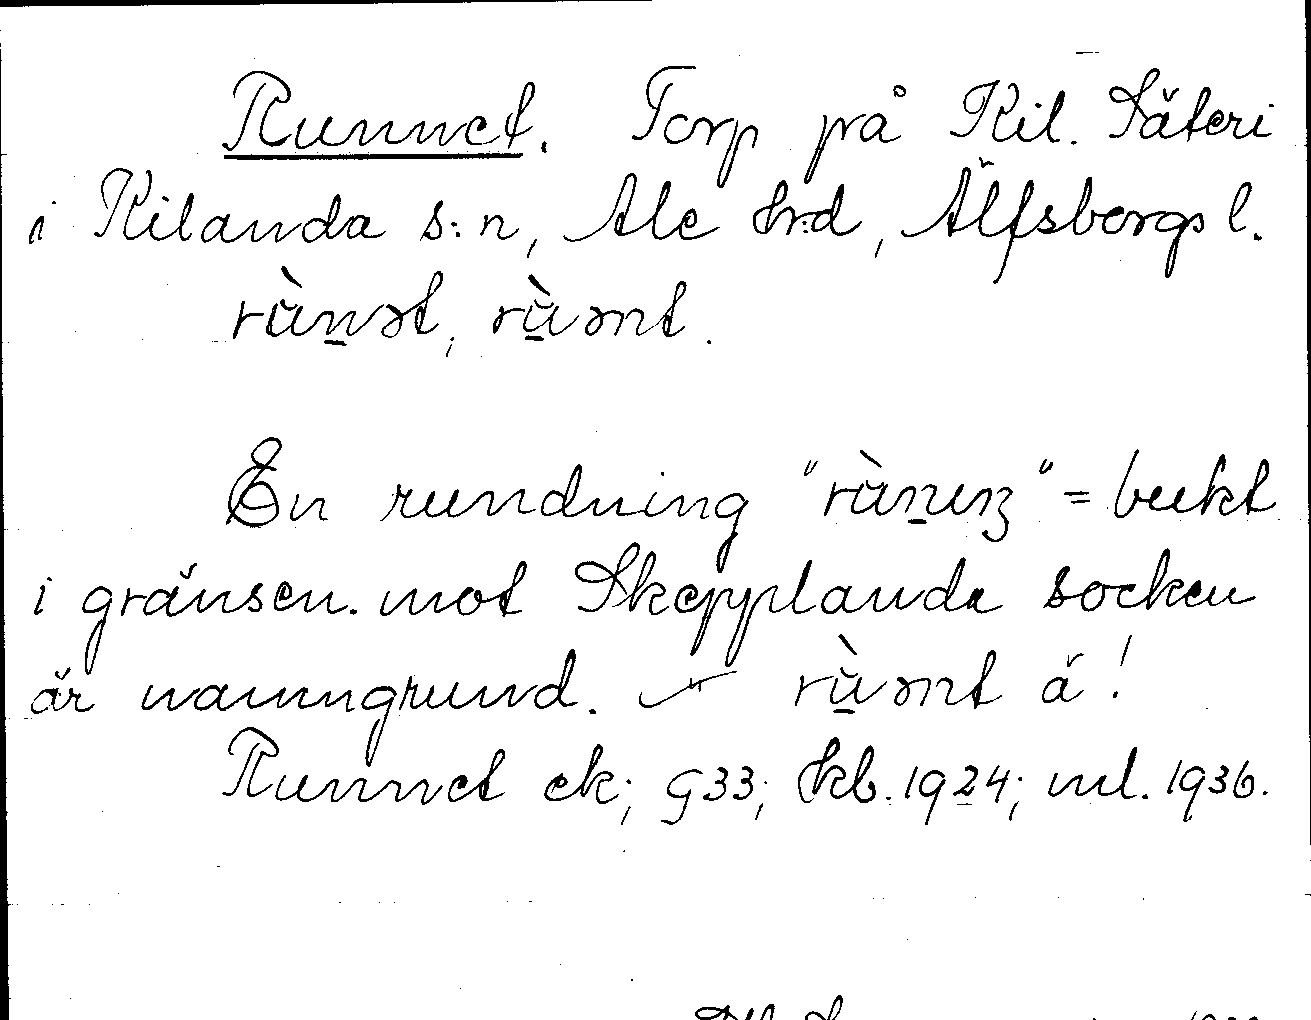 Runnet. Torp på Kil. Säteri
i Kilanda s:n, Ale hrd, Älfsborgs l.
rùnət, rùənt.
En rundning "rùnıŋ" = bukt
i gränsen mot Skepplanda socken
är namngrund. rùənt ä!
Runnet ek; g33; kb. 1924; ml. 1936.